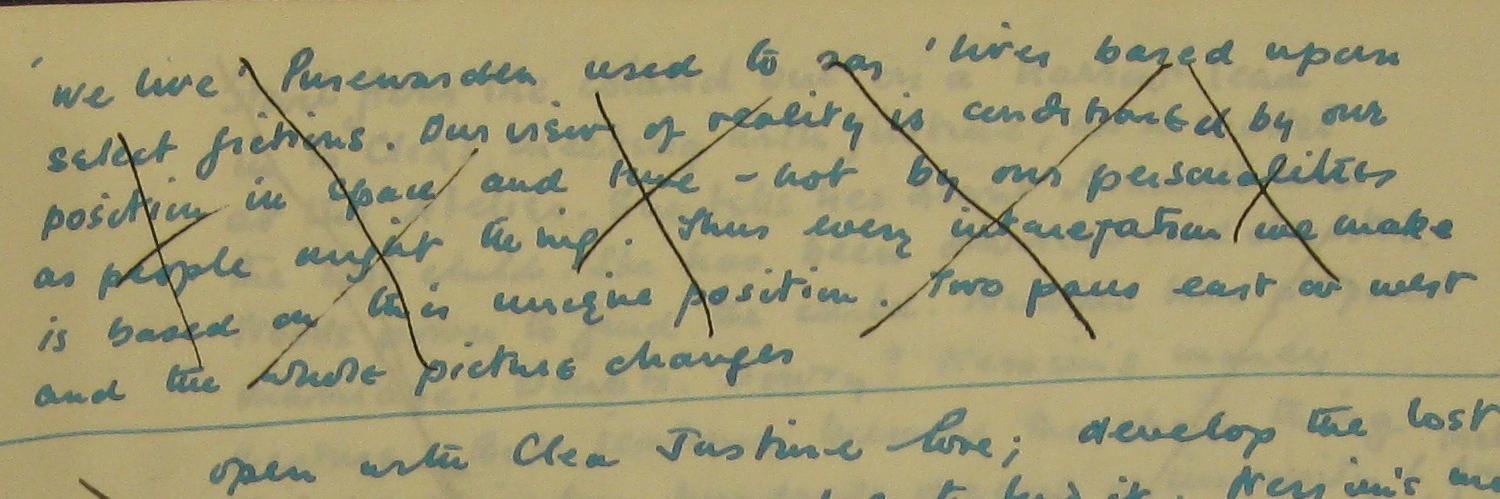 'We live' Pursewarden used to say 'lives based upon
select fictions. Our view of reality is conditioned by our
position in space and time - not by our personalities
as people might think. Thus every interpretation we make
is based on this unique position. Two paces east or west
and the whole picture changes
open with Clea Justine love; develop the lost
it. Nessim's